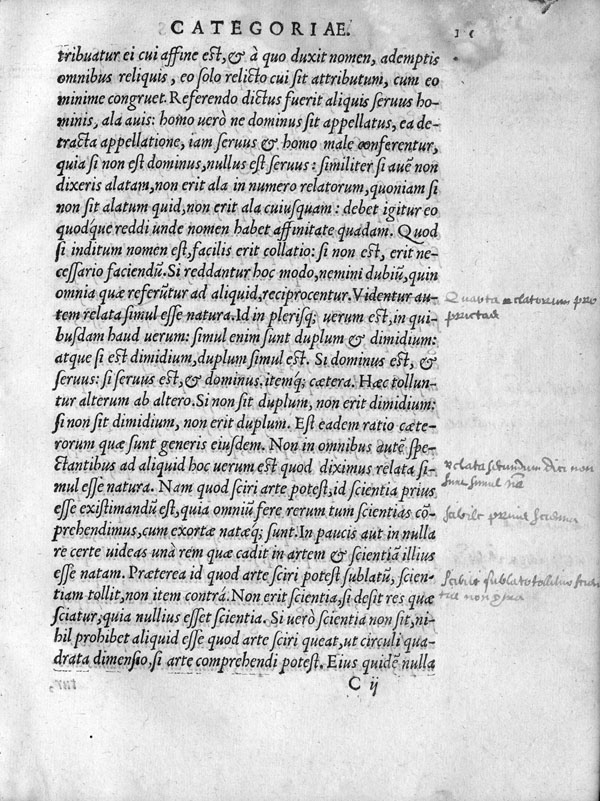 CATEGORIAE.
tribuatur ei cui affine est, & à quo duxit nomen, ademptis
omnibus reliquis, eo solo relicto cui sit attributum, cum eo
minime congruet. Referendo dictus fuerit aliquis seruus ho-
minis, ala auis: homo uerò ne dominus sit appellatus, ea de-
tracta appellatione, iam seruus & homo male conferentur,
quia si non est dominus, nullus est seruus: similiter si auē non
dixeris alatam, non erit ala in numero relatorum, quoniam si
non sit alatum quid, non erit ala cuiusquam: debet igitur eo
quodque reddi unde nomen habet affinitate quadam. Quod
si inditum nomen est, facilis erit collatio: si non est, erit ne-
cessario faciendū. Si reddantur hoc modo, nemini dubiū, quin
omnia quæ referūtur ad aliquid, reciprocentur. Videntur au-
tem relata simul esse natura. Id in plerisq; uerum est, in qui-
Quarta relatorum pro
prietas
busdam haud uerum: simul enim sunt duplum & dimidium:
atque si est dimidium, duplum simul est. Si dominus est, &
seruus: si seruus est, & dominus. itemq́; cætera. Hæc tollun-
tur alterum ab altero. Si non sit duplum, non erit dimidium:
si non sit dimidium, non erit duplum. Est eadem ratio cæte-
rorum quæ sunt generis eiusdem. Non in omnibus autē spe-
ctantibus ad aliquid hoc uerum est quod diximus relata si-
relata secundum dici non
sunt simul nā
mul esse natura. Nam quod sciri arte potest, id scientia prius
esse existimandū est, quia omniū fere rerum tum scientias cō-
scibile prius
prehendimus, cum exortæ natæq; sunt. In paucis aut in nulla
re certe uideas unà rem quæ cadit in artem & scientiā illius
esse natam. Præterea id quod arte sciri potest sublatū, scien-
scibile sublato
non
tiam tollit, non item contrá. Non erit scientia, si desit res quæ
sciatur, quia nullius esset scientia. Si uerò scientia non sit, ni-
hil prohibet aliquid esse quod arte sciri queat, ut circuli qua-
drata dimensio, si arte comprehendi potest. Eius quidē nulla
C ij